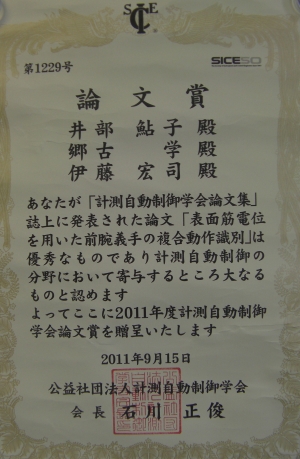 SICE
SICE50
第1229号
論文賞
井部 鮎子 殿
郷古 学 殿
伊藤 宏司 殿
あなたが「計測自動制御学会論文集」
誌上に発表された論文「表面筋電位
を用いた前腕義手の複合動作識別」は
優秀なものであり計測自動制御の
分野において寄与するところ大なる
ものと認めます
よってここに2011年度計測自動制御
学会論文賞を贈呈いたします
2011年9月15日
公益社団法人計測自動制御学会
会長 石川 正俊